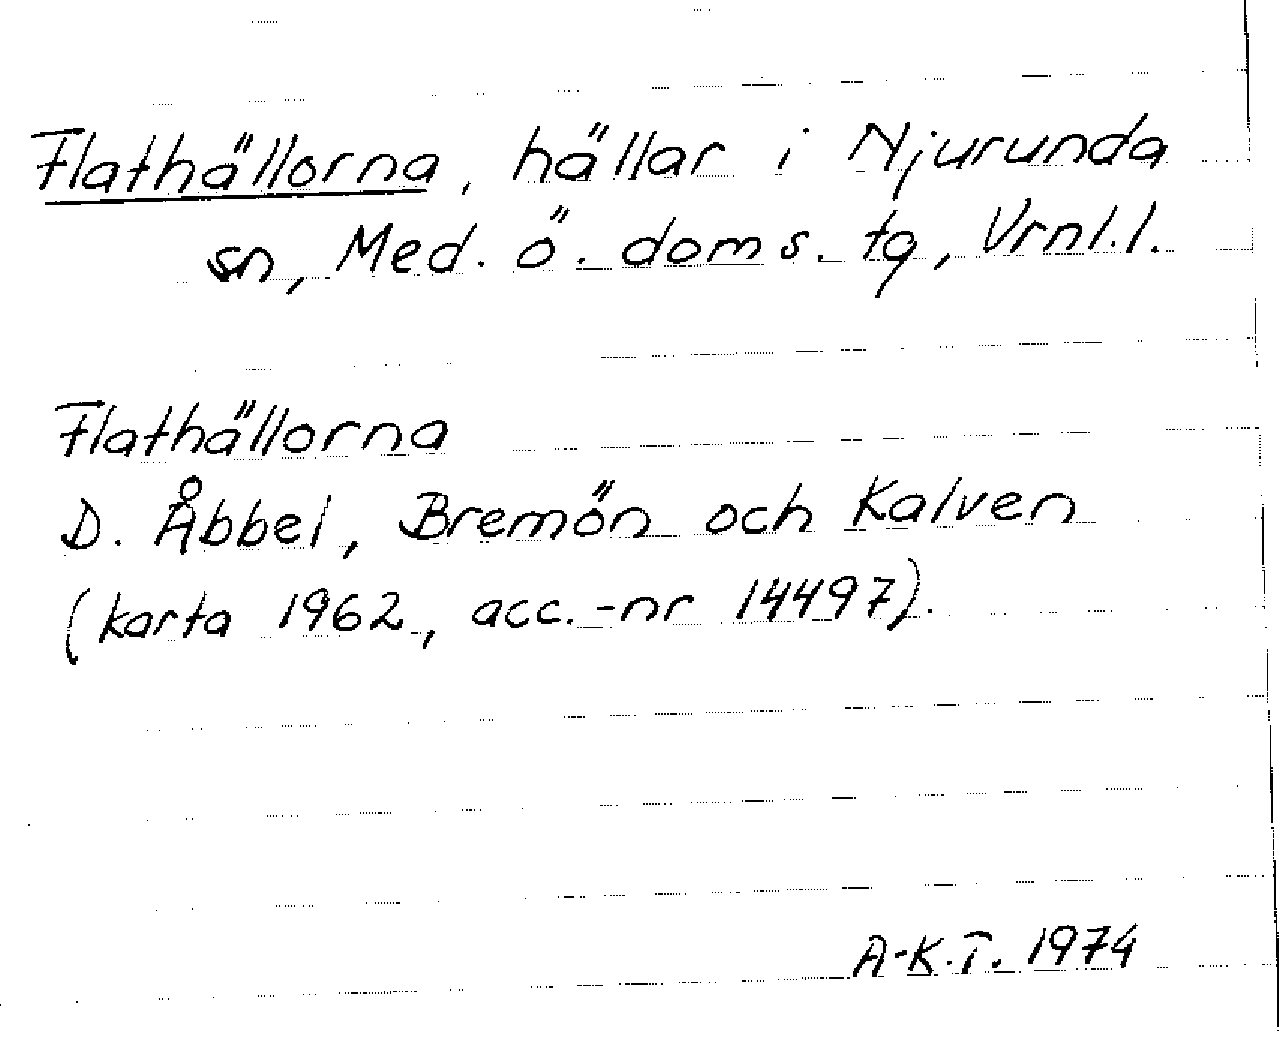 Flathällorna, hällar i Njurunda
sn, Med. ö. doms. tg, Vrnl.l.
Flathällorna
D. Åbbel, Bremön och Kalven
(karta 1962, acc.-nr 14497).
A-K.T. 1974